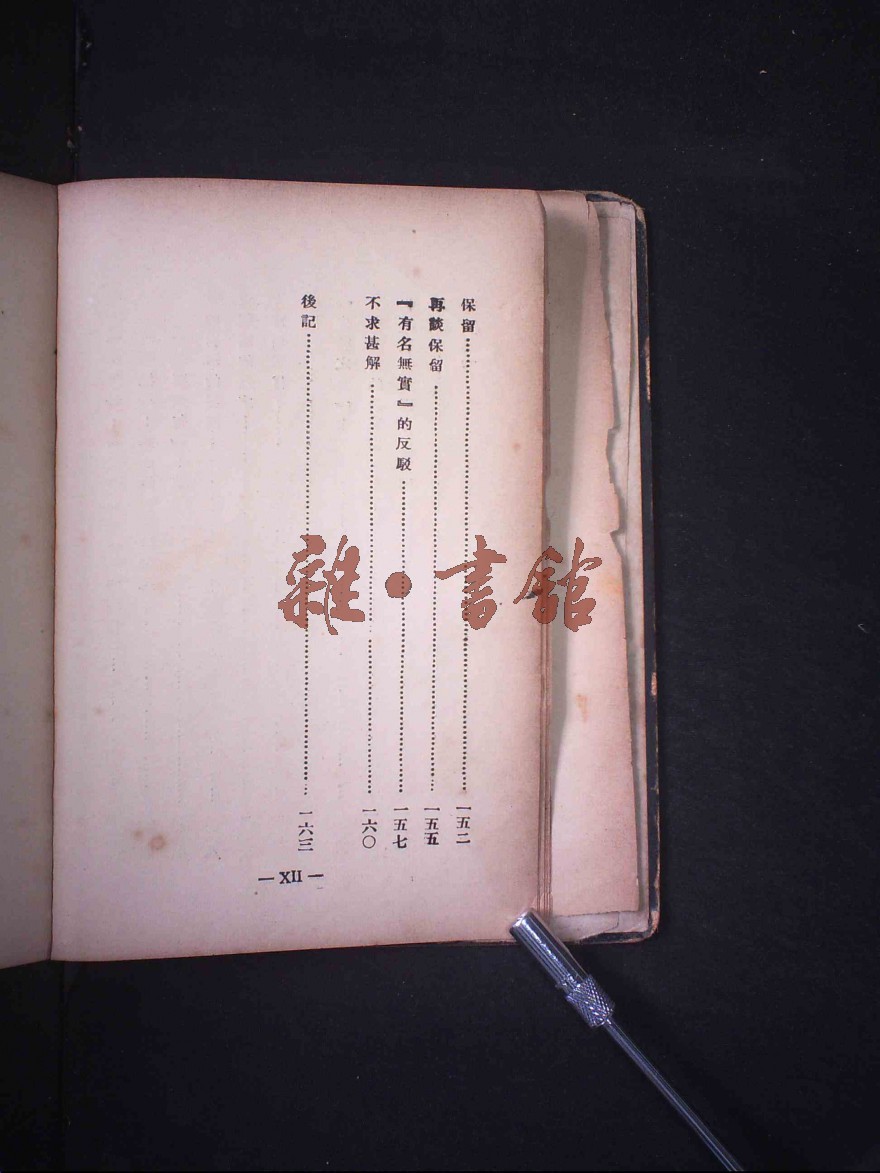 保留……一五二
再談保留……一五五
『有名無實』的反駁……一五七
不求甚解……一六〇
後記……一六三
— XII —
雜·書館